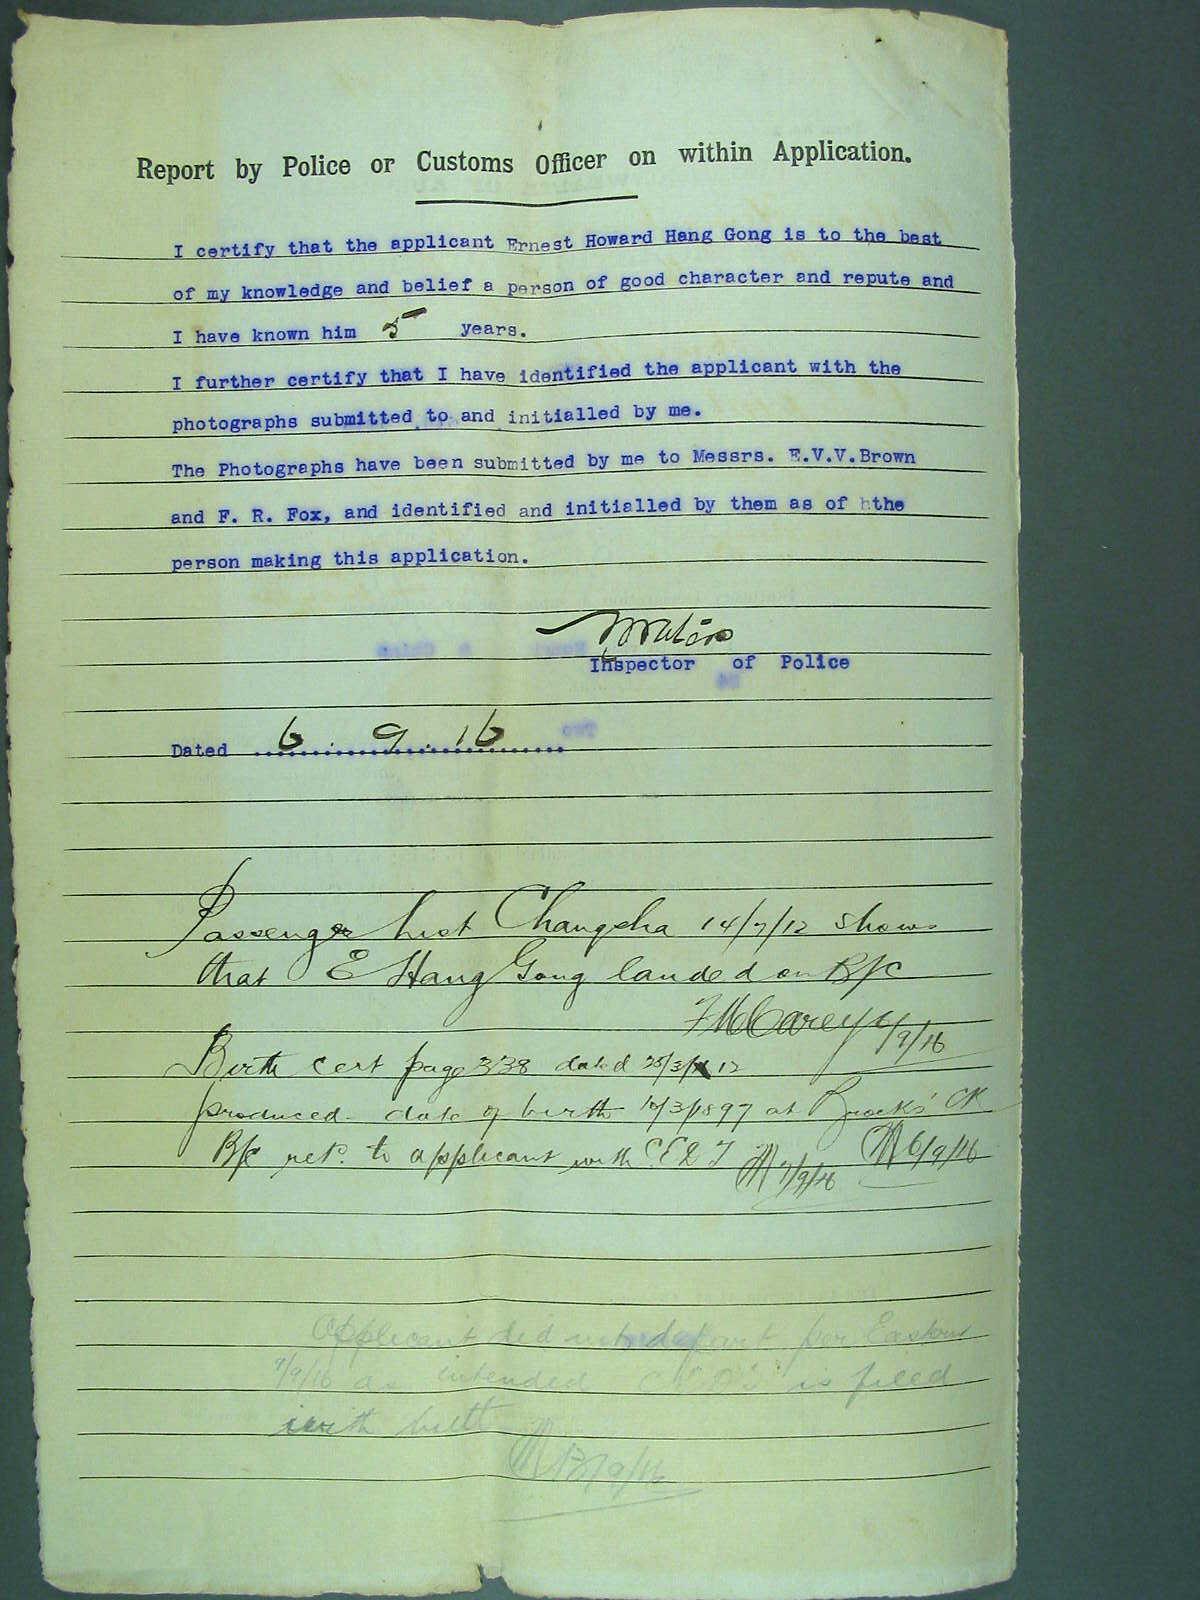 Report by Police or Customs Officer on within Application.
I certify that the applicant Ernest Howard Hang Gong is to the best
of my knowledge and belief a person of good character and repute and
I have known him 5 years.
I further certify that I have identified the applicant with the
photographs submitted to and initialled by me.
The Photographs have been submitted by me to Messrs. E.V.V.Brown
and F. R. Fox, and identified and initialled by them as of hthe
person making this application.
Inspector of Police
Dated 6.9.16
Passenger List Changsha 14/7/12 shows
that E Hang Gong landed on B/C
6/9/16
Birth cert page 338 dated 28/3/12
produced date of birth 10/3/1897 at Brocks' CK
B/C ret. to applicant with C.E.D.T 7/9/16 6/9/16
Applicant did not depart per Eastern
9/9/16 as intended CEDT is filed
with
13/9/16